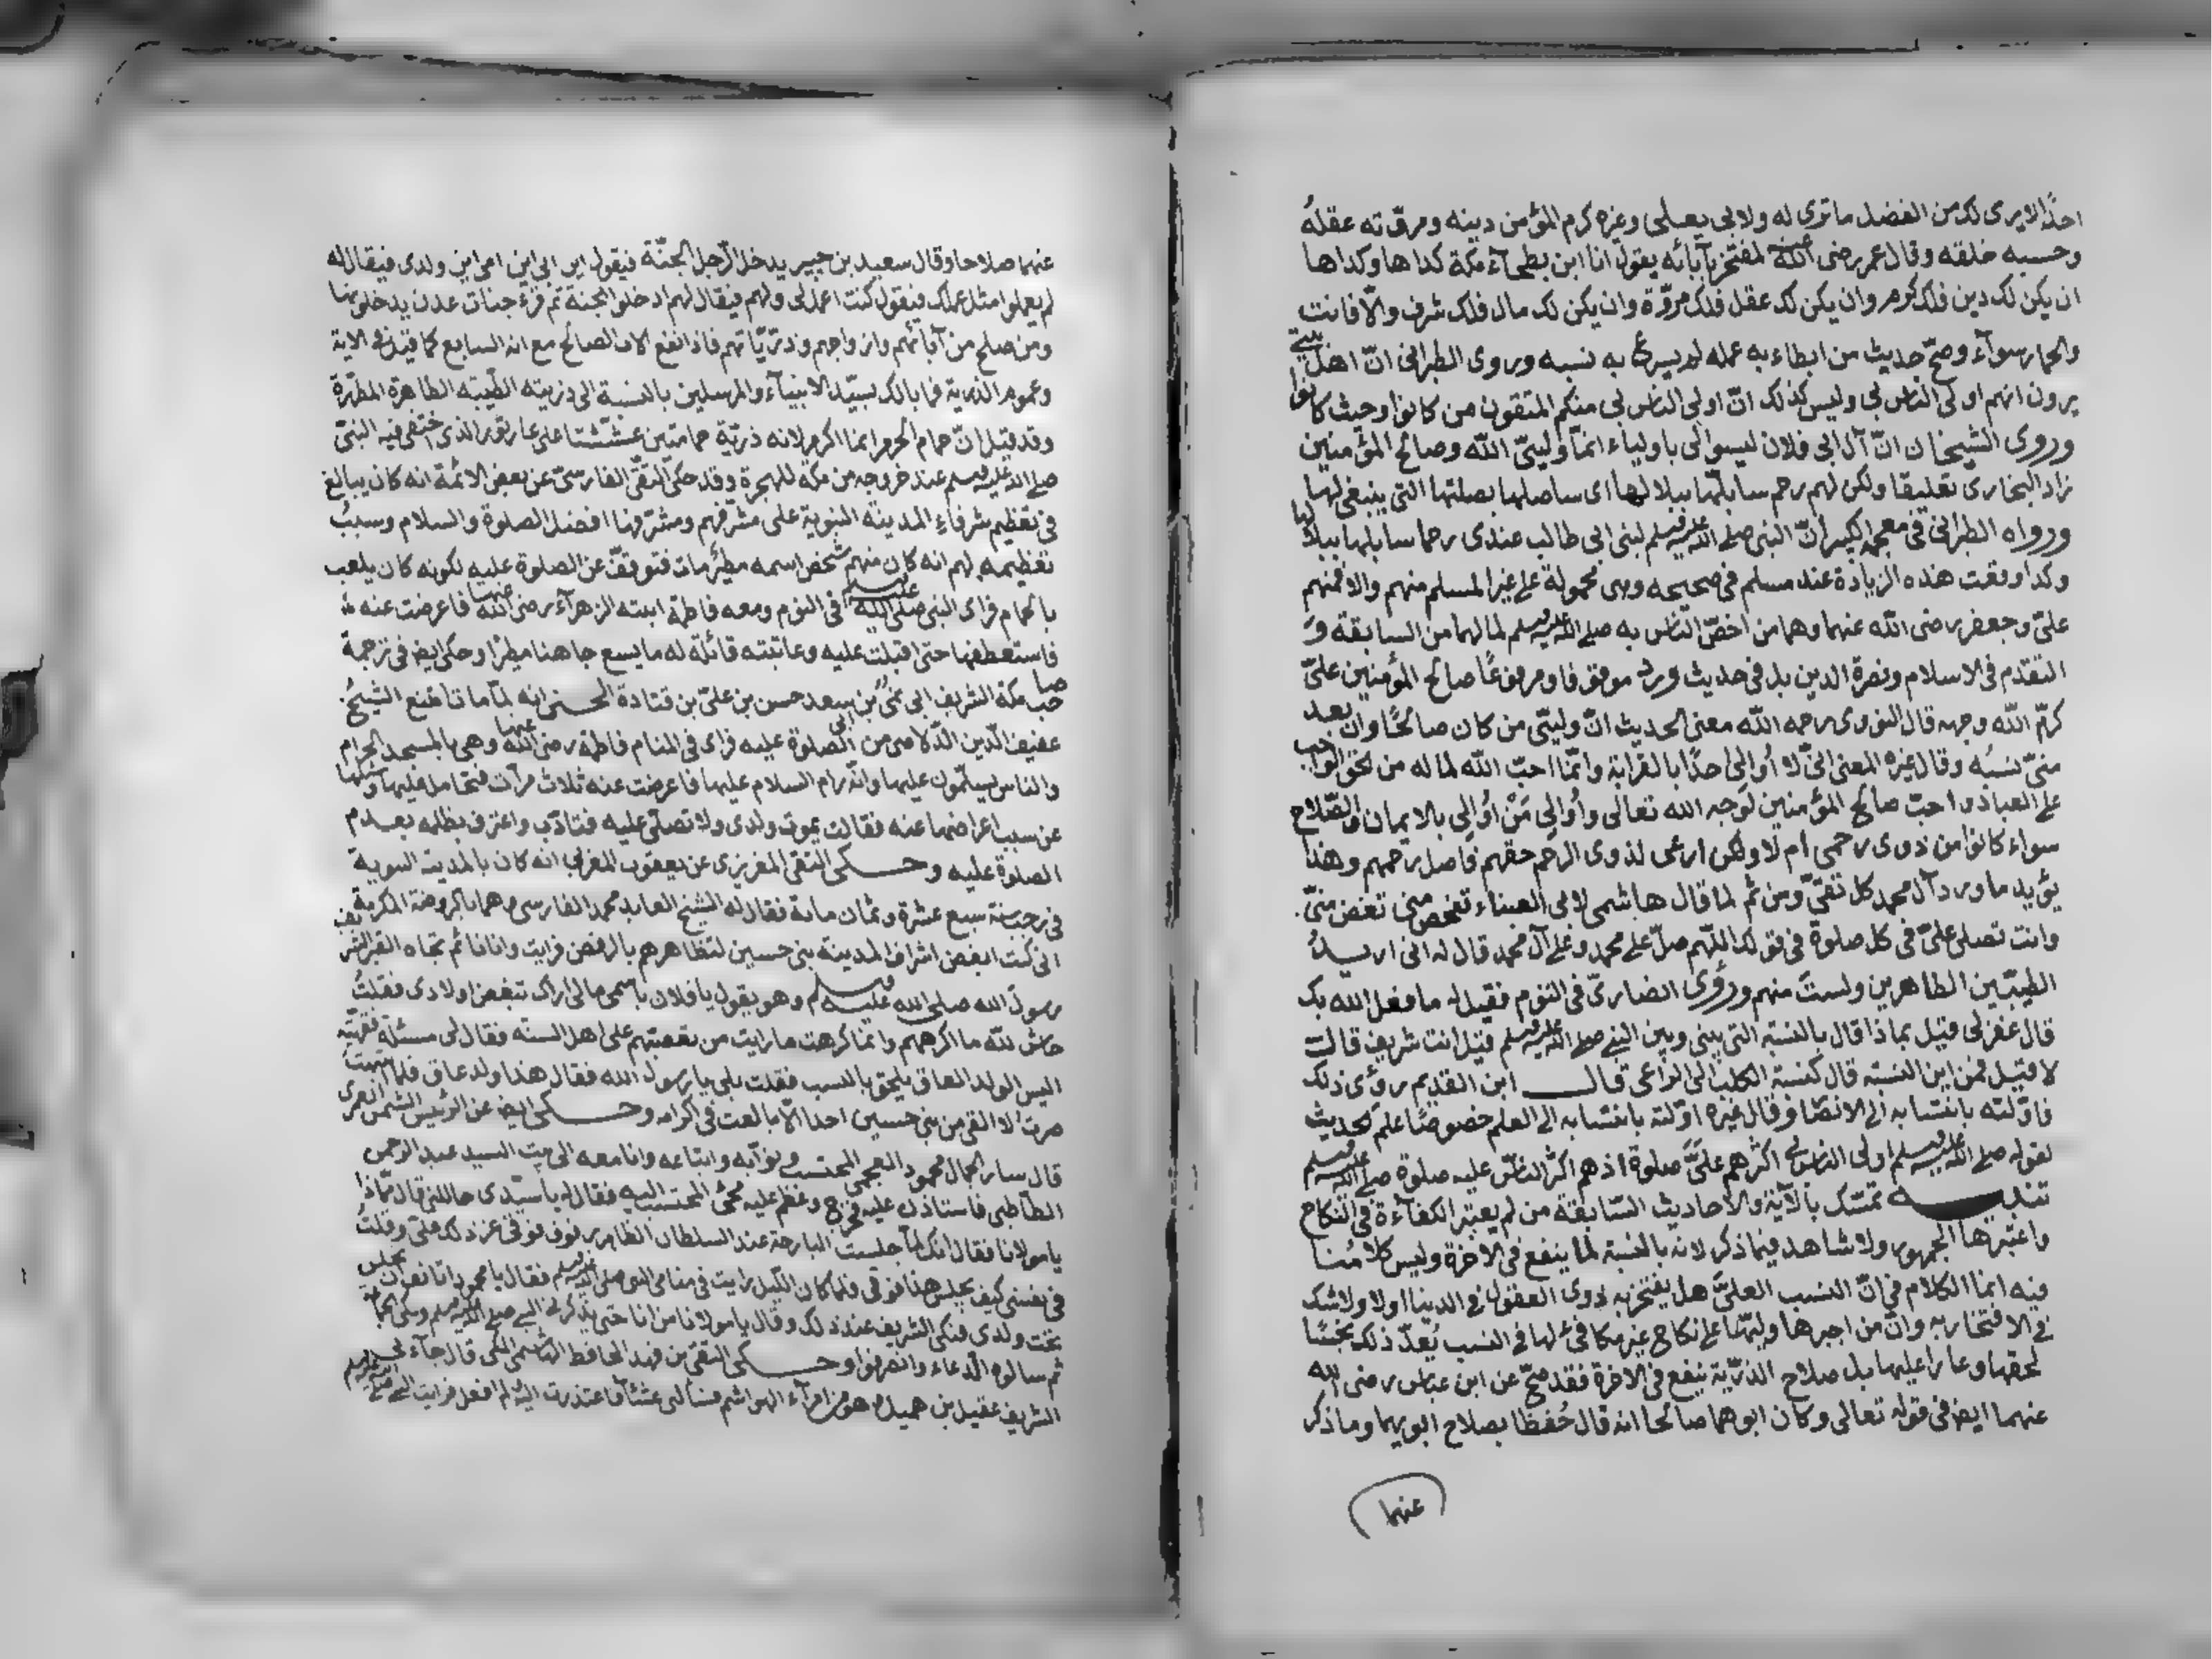 احدًا لا يرى لك من الفضل ما ترى له ولابي يعلى وغيره كرم المؤمن دينه ومروّته عقلهُ
وحسبه خلقه وقال عمر رضى الله عنه لمفتخر بآبائه يقول انا ابن بطحآء مكة كداها وكداها
ان يكن لك دين فلك كرم وان يكن لك عقل فلك مروّة وان يكن لك مال فلك شرف والّا فانت
والحمار سوآء وصحّ حديث من ابطاء به عمله لم يسرع به نسبه وروى الطبرانى انّ اهل بيتى
يرون انهم اولى الناس بى وليس كذلك انّ اولى الناس بى منكم المتقون من كانوا وحيث كانوا
وروى الشيخان انّ آل ابى فلان ليسوا لى باولياء انمّا وليىّ الله وصالح المؤمنين
زاد البخارى تعليقا ولكن لهم رحم سابلّها ببلالها اى ساصلها بصلتها التى ينبغى لها
ورواه الطبرانى فى معجمه الكبير انّ النبى صلى الله عليه وسلم لبنى ابى طالب عندى رحما سابلها ببلالها
وكذا وقعت هذه الزيادة عند مسلم فى صحيحه وهى محمولة على غير المسلم منهم والا فمنهم
علىّ وجعفر رضى الله عنهما وهما من اخصّ النّاس به صلى الله عليه وسلم لما لهما من السابقة وَ
التقدم فى الاسلام ونصرة الدين بل فى حديث ورد موقوفا ومرفوعًا صالح المؤمنين علىّ
كرّم الله وجهه قال النووى رحمه الله معنى الحديث انّ وليىّ من كان صالحًا وان بعد
منىّ نسبُه وقال غيره المعنى انىّ لا أُوالِى احدًا بالقرابة وانّما احبّ الله لما له من الحق الواجب
على العباد واحبّ صالح المؤمنين لوجه الله تعالى وأُوالِى مَنْ أُوالِى بالايمان والصّلاح
سواء كانوا من ذوى رحمى ام لا ولكن ارعى لذوى الرحم حقهم فاصل رحمهم وهذا
يؤيد ما ورد آل محمد كل تقىّ ومن ثم لما قال هاشمى لابى العيناء تغض منى تغض منىّ
وانت تصلى علىّ فى كل صلوة فى قولك اللّهم صلّ على محمد وعلى آل محمد قال له انى اريدُ
الطيّبين الطاهرين ولستَ منهم ورؤى انصارىّ فى النوم فقيل له ما فعل الله بك
قال غفر لى قيل بماذا قال بالنسبة التى بينى وبين النبى صلى الله عليه وسلم قيل انت شريف قالت
لا قيل فمن اين النسبة قال كنسبة الكلب الى الرّاعى قال ابن القديم رؤى ذلك
فاوّلته بانتسابه الى الانصار وقال غيره اوّلته بانتسابه الى العلم خصوصًا علم الحديث
لقوله صلى الله عليه وسلم اولى الناس بى اكثرهم علىَّ صلوة اذ هم اكثر الناس عليه صلوة صلى الله عليه وسلم
تنبيه تمسّك بالآية والاحاديث السّابقة من لم يعتبر الكفآءة فى النكاح
واعتبرها الجمهور ولا شاهد فيما ذكر لانه بالنسبة لما ينفع فى الاخرة وليس كلامُنا
فيه انما الكلام فى انّ النسب العلىَّ هل يفتخر به ذوى العقول فى الدنيا اولا ولا شك
فى الافتخار به وانّ من اجبرها وليّها على نكاح غير مكافئ لها فى النسب يُعدّ ذلك بخسًا
لحقها وعارا عليها بل صلاح الذرّية ينفع فى الاخرة فقد صحّ عن ابن عباس رضى الله
عنهما ايض فى قوله تعالى وكان ابوهما صالحا انه قال حُفظا بصلاح ابويهما وما ذكر
عنهما
عنهما صلاحا وقال سعيد بن جبير يدخل الرّجل الجنّة فيقول اين ابى اين امى اين ولدى فيقال له
لم يعملوا مثل عملك فيقول كنت اعمل لى ولهم فيقال لهم ادخلوا الجنة ثم قرء جنات عدن يدخلونها
ومن صلح من آبائهم وازواجهم وذرّيّاتهم فاذا نفع الاب الصالح مع انه السابع كما قيل فى الاية
وعموم الذرية فما بالك بسيّد الانبيآء والمرسلين بالنسبة الى ذريته الطّيبة الطاهرة المطهّرة
وقد قيل انّ حمام الحرم انما اكرم لانه ذريّة حمامتين عشّشتا على غار ثور الذى اختفى فيه النبىّ
صلى الله عليه وسلم عند خروجه من مكة للهجرة وقد حكى التقىّ الفارسىّ عن بعض الائمة انه كان يبالغ
فى تعظيم شرفاء المدينة النبوية على مشرّفهم ومشرّفها افضل الصلوة والسلام وسببُ
تعظيمه لهم انه كان منهم شخص اسمه مطير مات فتوقفّ عن الصلوة عليه لكونه كان يلعب
بالحمام فراى النبى صلى الله عليه وسلم فى النوم ومعه فاطمة ابنته الزهرآء رضى الله عنها فاعرضت عنه
فاستعطفها حتى اقبلت عليه وعاتبته قائلة له ما يسع جاهنا مطيرًا وحكى ايض فى ترجمة
صاحب مكة الشريف ابى نمىّ بن سعد حسن بن علىّ بن قتادة الحسنى انه لمّا مات امتنع الشيخُ
عفيف الدّين الدّلاصى من الصلوة عليه فراى فى المنام فاطمة رضى الله عنها وهى بالمسجد الحرام
والناس يسلّمون عليها وانّه رام السلام عليها فاعرضت عنه ثلاث مرّات فتحامل عليها وسئلها
عن سبب اعراضها عنه فقالت يموت ولدى ولا تصلّى عليه فتادّب واعترف بظلمه بعدم
الصلوة عليه وحكى التقى المقريزى عن يعقوب المغربى انه كان بالمدينة النبوية
فى رجب سنة سبع عشرة وثمان مائة فقال له الشيخ العابد محمد الفارسى وهما بالروضة المكرمة
انى كنت ابغض اشراف المدينة بنى حسين لتظاهرهم بالرفض فرايت وانا نائم تجاه القبر الشريف
رسول الله صلى الله عليه وسلم وهو يقول يا فلان باسمى مالى اراك تبغض اولادى فقلتُ
حاش لله ما اكرههم وانّما كرهت ما رايت من تعصبهم على اهل السنّة فقال لى مسئلة فقهيّة
اليس الولد العاق يلحق بالنسب فقلت بلى يا رسول الله فقال هذا ولد عاق فلما انتبهتُ
صرتُ لا القى من بنى حسين احدا الّا بالغت فى اكرامه وحكى ايض عن الرئيس الشمس العمرى
قال سار الجمال محمود العجمى المحتسب ونوّابه واتباعه وانا معه الى بيت السيد عبد الرحمن
الطباطبى فاستاذن عليه فخرج وعظم عليه مجئ المحتسب اليه فقال له يا سيّدى حاللنى قال ممّاذا
يا مولانا فقال انك لمّا جلست البارحة عند السلطان الظاهر برقوق فوقى عز ذلك علىّ وقلتُ
فى نفسى كيف يجلس هذا فوقى فلما كان اللّيل رايت فى منامى النبى صلى الله عليه وسلم فقال يا محمود اتانف ان تجلس
تحت ولدى فبكى الشريف عند ذلك وقال يا مولانا من انا حتى يذكرنى النبى صلى الله عليه وسلم وبكى الجماعة
ثم سالوه الدّعاء وانصرفوا وحكى التقىّ بن فهد الحافظ الهاشمى المكى قال جآء لى
الشريف عقيل بن هميل وهو من امرآء الهواشم فسالنى عشاًء فاعتذرت اليه ولم افعل فرايت النبى صلى الله عليه وسلم